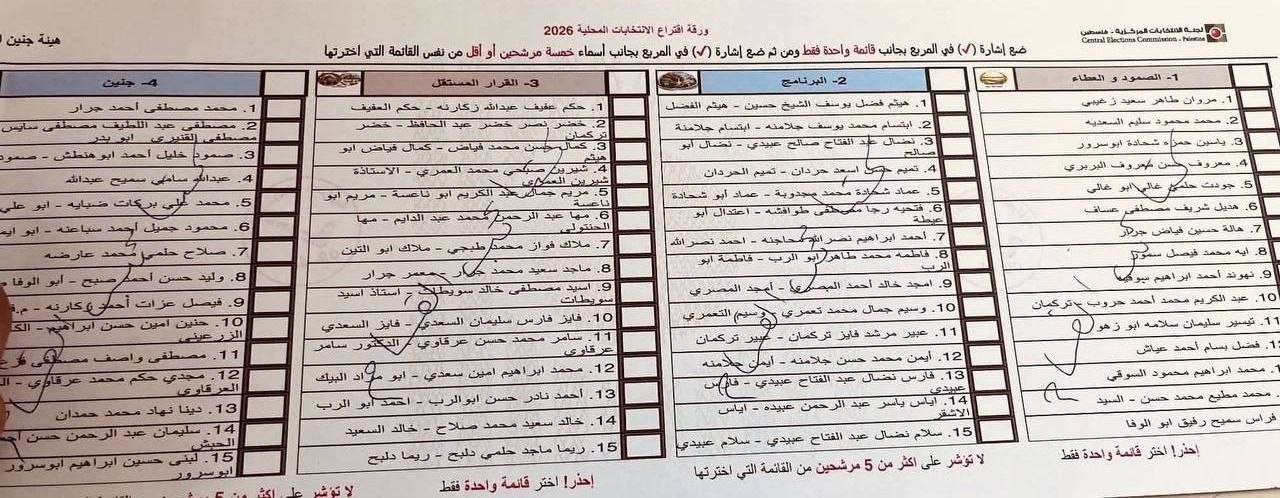 لجنة الانتخابات المركزية - فلسطين
Central Elections Commission - Palestine
ورقة اقتراع الانتخابات المحلية 2026
هيئة جنين
ضع إشارة (✓) في المربع بجانب قائمة واحدة فقط ومن ثم ضع إشارة (✓) في المربع بجانب أسماء خمسة مرشحين أو أقل من نفس القائمة التي اخترتها
1- الصمود و العطاء
1. مروان طاهر سعيد زغيبي
2. محمد محمود سليم السعديه
3. ياسين حمزه شحادة ابوسرور
4. معروف حسن معروف البربري
5. جودت حلمي غالي ابو غالي
6. هديل شريف مصطفى عساف
7. هالة حسين فياض جرار
8. ايه محمد فيصل سمودي
9. نهوند أحمد ابراهيم
10. عبد الكريم محمد أحمد حروب - تركمان
11. تيسير سليمان سلامه ابو زهو
12. فضل بسام أحمد عياش
محمد ابراهيم محمود السوقي
محمد مطيع محمد حسن - السيد
فراس سميح رفيق ابو الوفا
إحذر! اختر قائمة واحدة فقط
2- البرنامج
1. هيثم فضل يوسف الشيخ حسين - هيثم الفضل
2. ابتسام محمد يوسف جلامنه - ابتسام جلامنة
3. نضال عبد الفتاح صالح عبيدي - نضال أبو صالح
4. تميم حسن أسعد حردان - تميم الحردان
5. عماد شحادة محمد مجدوبة - عماد أبو شحادة
6. فتحيه رجا مصطفى طوافشه - اعتدال ابو عيطة
7. أحمد ابراهيم نصر الله محاجنه - احمد نصر الله
8. فاطمه محمد طاهر ابو الرب - فاطمة ابو الرب
9. امجد خالد أحمد المصري - امجد المصري
10. وسيم جمال محمد تعمري - وسيم التعمري
11. عبير مرشد فايز تركمان - عبير تركمان
12. أيمن محمد حسن جلامنه - ايمن جلامنه
13. فارس نضال عبد الفتاح عبيدي - فارس عبيدي
14. اياس ياسر عبد الرحمن عبيده - اياس الاشقر
15. سلام نضال عبد الفتاح عبيدي - سلام عبيدي
لا تؤشر على اكثر من 5 مرشحين من القائمة التي اخترتها
3- القرار المستقل
1. حكم عفيف عبدالله زكارنه - حكم العفيف
2. خضر نصر خضر عبد الحافظ - خضر تركمان
3. كمال حسن محمد فياض - كمال فياض ابو هيثم
4. شيرين صبحي محمد العمري - الاستاذة شيرين العمري
5. مريم جمال عبد الكريم ابو ناعسة - مريم ابو ناعسة
6. مها عبد الرحمن محمد عبد الدايم - مها الحنتولي
7. ملاك فواز محمد طبجي - ملاك ابو التين
8. ماجد سعيد محمد جرار - معمر جرار
9. اسيد مصطفى خالد سويطات - استاذ اسيد سويطات
10. فايز فارس سليمان السعدي - فايز السعدي
11. سامر محمد حسن عرقاوي - الدكتور سامر عرقاوي
12. محمد ابراهيم امين سعدي - ابو مراد البيك
13. أحمد نادر حسن ابوالرب - احمد ابو الرب
14. خالد سعيد محمد صلاح - خالد السعيد
15. ريما ماجد حلمي دلبح - ريما دلبح
إحذر! اختر قائمة واحدة فقط
4- جنين
1. محمد مصطفى أحمد جرار
2. مصطفى عبد اللطيف مصطفى سايس
مصطفى القنيري ابو بدر
3. صمود خليل أحمد ابوهنطش - صمود
4. عبدالله سامي سميح عبدالله
5. محمد علي بركات ضبايه - ابو علي
6. محمود جميل أحمد سباعنه - ابو
7. صلاح حلمي محمد عارضه
8. وليد حسن أحمد صبح - ابو الوفا
9. فيصل عزات أحمد زكارنه -
10. حنين امين حسن ابراهيم -
الزرعيني
11. مصطفى واصف مصطفى
12. مجدي حكم محمد عرقاوي -
العرقاوي
13. دينا نهاد محمد حمدان
14. سليمان عبد الرحمن حسن
الحبش
15. لبنى حسين ابراهيم ابوسرور
ابوسرور
لا تؤشر على اكثر من 5 مرشحين من القائمة